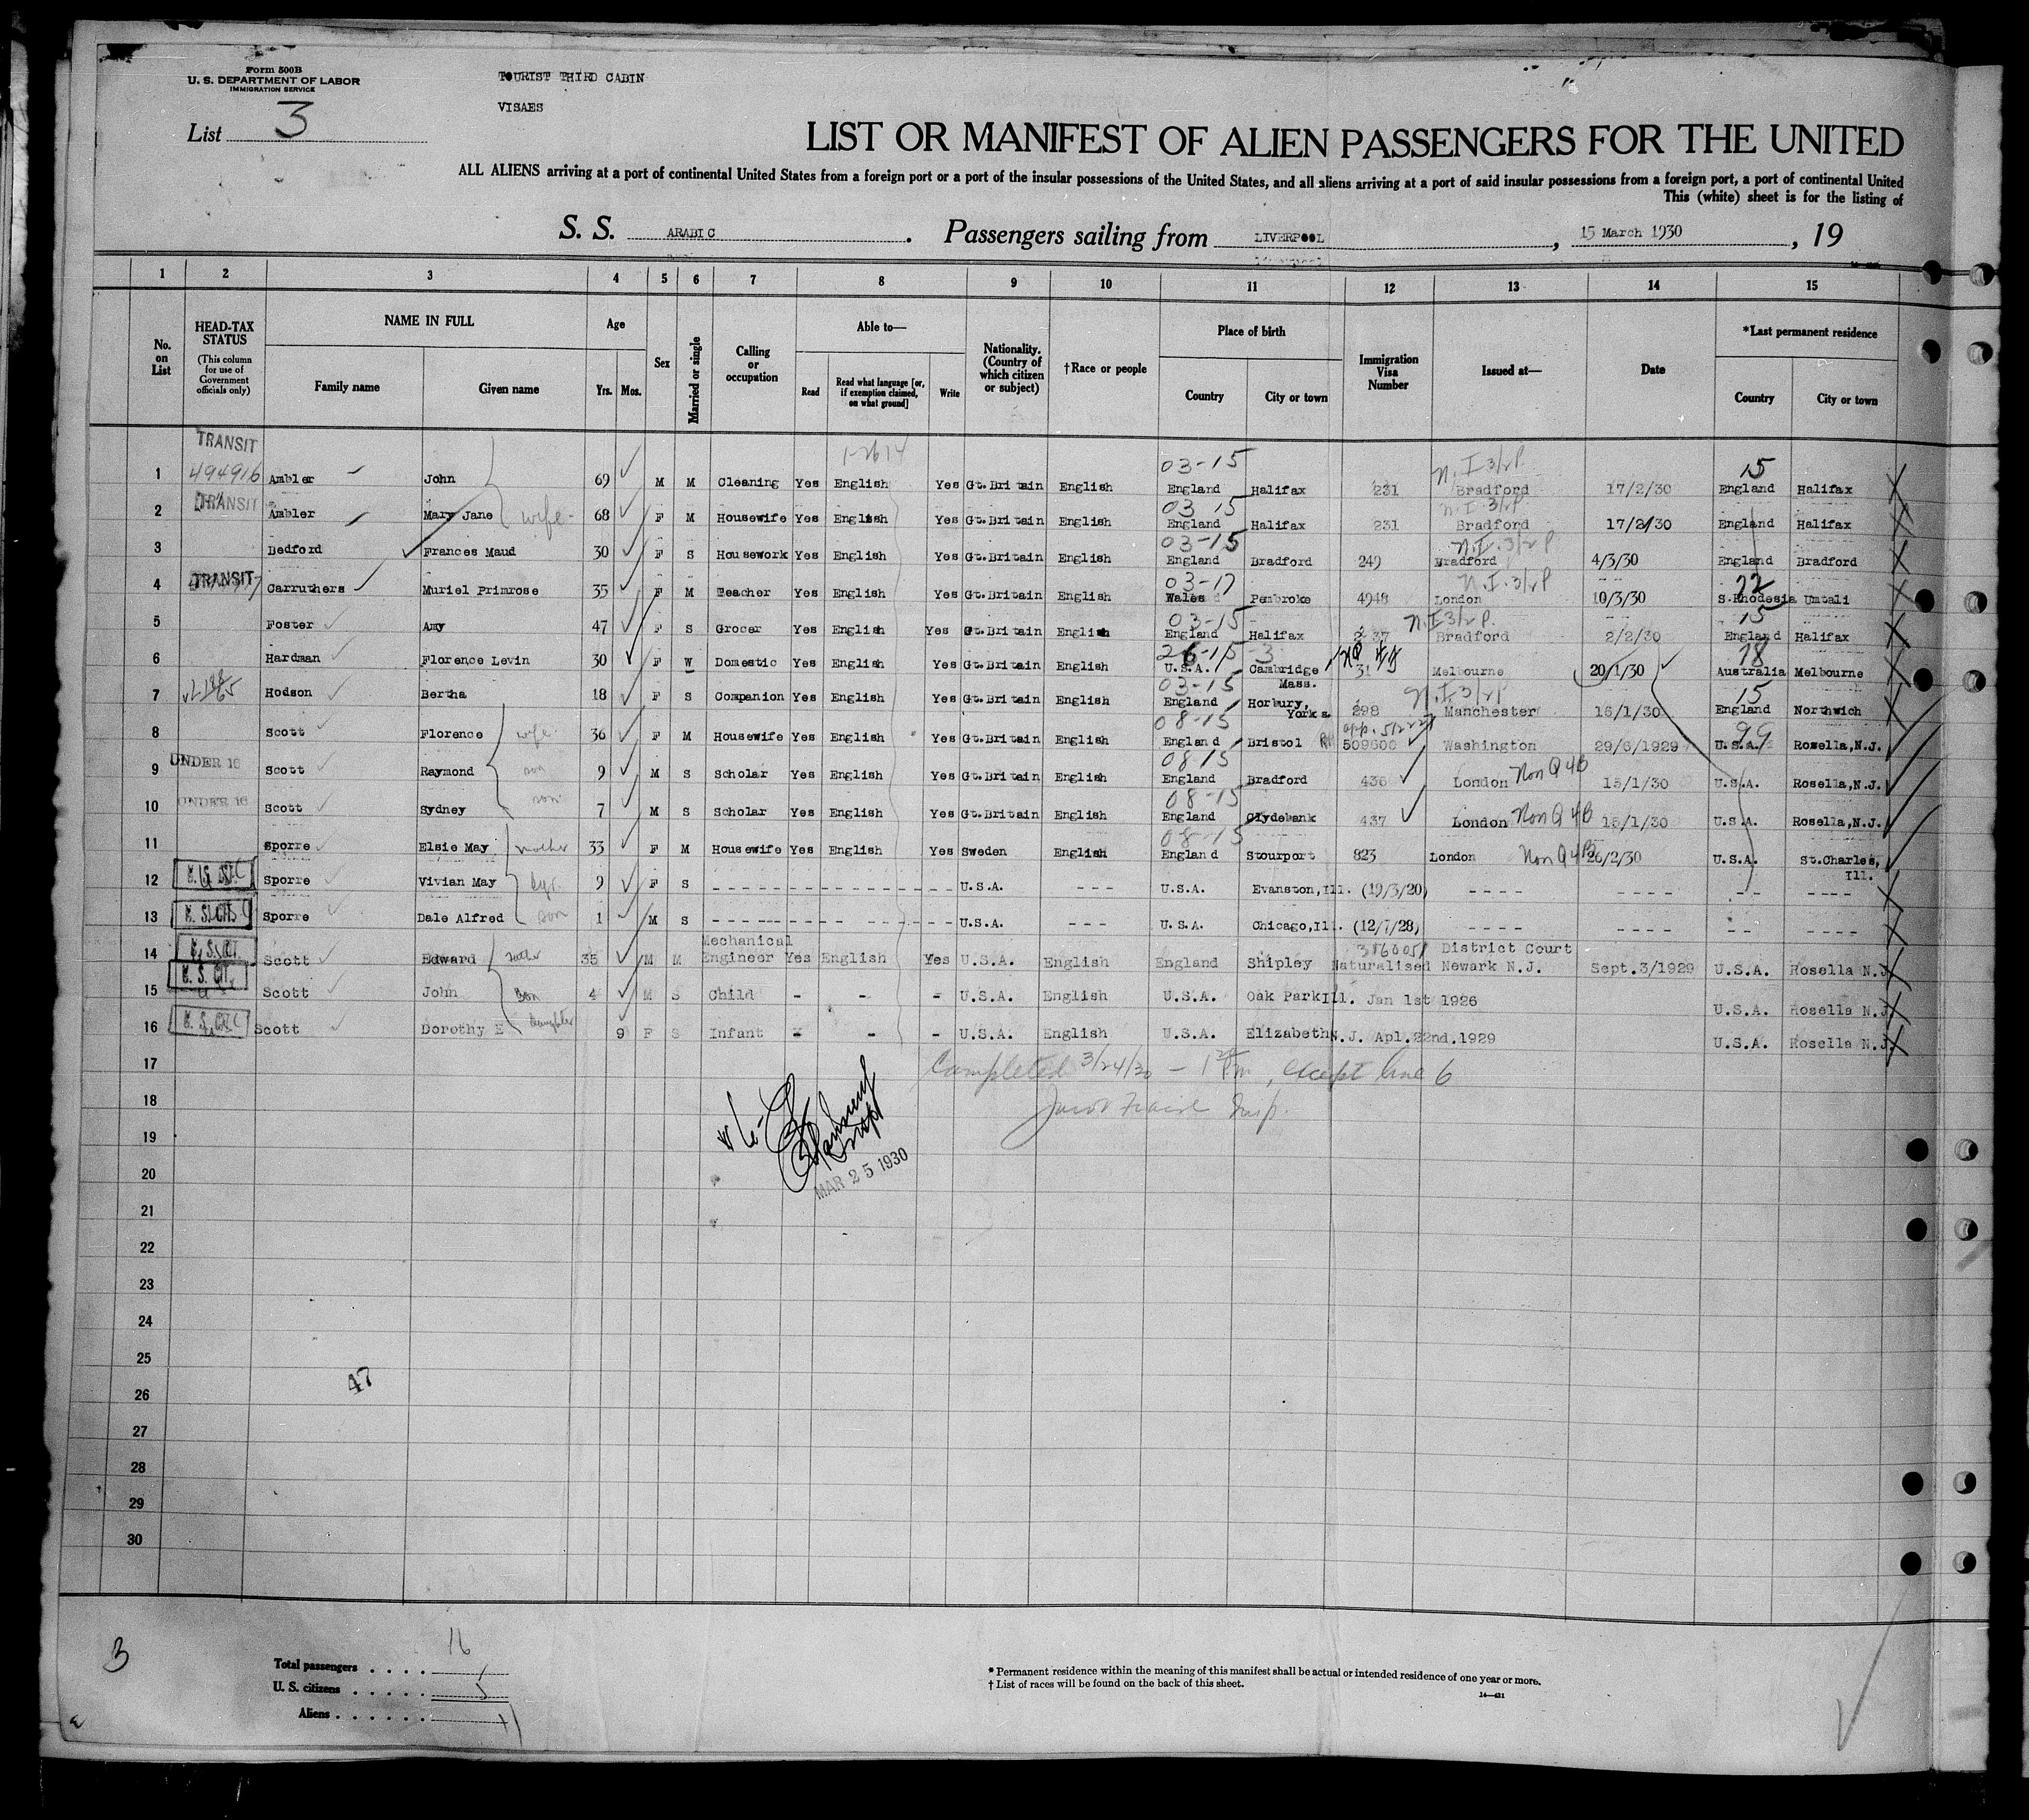 Form 500B
U. S. DEPARTMENT OF LABOR
IMMIGRATION SERVICE
TOURIST THIRD CABIN
VISAES
List 3
LIST OR MANIFEST OF ALIEN PASSENGERS FOR THE UNITED
ALL ALIENS arriving at a port of continental United States from a foreign port or a port of the insular possessions of the United States, and all aliens arriving at a port of said insular possessions from a foreign port, a port of continental United
This (white) sheet is for the listing of
S. S. ARABIC . Passengers sailing from LIVERPOOL , 15 March 1930 , 19
1 2 3 4 5 6 7 8 9 10 11 12 13 14 15
No. on List
HEAD-TAX STATUS (This column for use of Government officials only)
NAME IN FULL
Family name Given name
Age Yrs. Mos.
Sex
Married or single
Calling or occupation
Able to— Read Read what language [or, if exemption claimed, on what ground] Write
Nationality. (Country of which citizen or subject)
†Race or people
Place of birth Country City or town
Immigration Visa Number
Issued at—
Date
*Last permanent residence Country City or town
TRANSIT 03-15 N.I 3/2 P 15
1 494916 Ambler John 69 M M Cleaning Yes English Yes Gt.Britain English England Halifax 231 Bradford 17/2/30 England Halifax
TRANSIT 03 15 N.I 3/2 P
2 Ambler Mary Jane wife 68 F M Housewife Yes English Yes Gt.Britain English England Halifax 231 Bradford 17/2/30 England Halifax
03-15 N.I. 3/2 P
3 Bedford Frances Maud 30 F S Housework Yes English Yes Gt.Britain English England Bradford 249 Bradford 4/3/30 England Bradford
TRANSIT 03-17 N.I. 3/2 P 72
4 Carruthers Muriel Primrose 35 F M Teacher Yes English Yes Gt.Britain English Wales Pembroke 4948 London 10/3/30 S.Rhodesia Umtali
03-15 N.I 3/2 P. 15
5 Foster Amy 47 F S Grocer Yes English Yes Gt.Britain English England Halifax 237 Bradford 2/2/30 England Halifax
26-15-3 78
6 Hardman Florence Levin 30 F W Domestic Yes English Yes Gt.Britain English U.S.A. Cambridge Mass. 31 Melbourne 20/1/30 Australia Melbourne
03-15 N.I. 3/2 P 15
7 Hodson Bertha 18 F S Companion Yes English Yes Gt.Britain English England Horbury, Yorks. 298 Manchester 16/1/30 England Northwich
08-15 99
8 Scott Florence wife 36 F M Housewife Yes English Yes Gt.Britain English England Bristol 509600 Washington 29/6/1929 U.S.A. Rosella,N.J.
UNDER 16 08-15
9 Scott Raymond son 9 M S Scholar Yes English Yes Gt.Britain English England Bradford 436 London Non Q 4B 15/1/30 U.S.A. Rosella,N.J.
UNDER 16 08-15
10 Scott Sydney son 7 M S Scholar Yes English Yes Gt.Britain English England Clydebank 437 London Non Q 4B 15/1/30 U.S.A. Rosella,N.J.
08-15
11 Sporre Elsie May mother 33 F M Housewife Yes English Yes Sweden English England Stourport 823 London Non Q 4B 26/2/30 U.S.A. St.Charles, Ill.
12 U. S. CIT. Sporre Vivian May 9 F S U.S.A. - - - U.S.A. Evanston,Ill. (19/3/20) - - - - - - - - - - - -
13 U. S. CIT. Sporre Dale Alfred son 1 M S U.S.A. - - - U.S.A. Chicago,Ill. (12/7/28) - - - - - - - - - - - -
14 U. S. CIT. Scott Edward father 35 M M Mechanical Engineer Yes English Yes U.S.A. English England Shipley 3160051 Naturalised District Court Newark N.J. Sept.3/1929 U.S.A. Rosella N.J.
15 U. S. CIT. Scott John Son 4 M S Child - - - U.S.A. English U.S.A. Oak Park Ill. Jan 1st 1926 U.S.A. Rosella N.J.
16 U. S. CIT. Scott Dorothy E daughter 9 F S Infant - - - U.S.A. English U.S.A. Elizabeth N.J. Apl.22nd.1929 U.S.A. Rosella N.J.
17 Completed 3/24/30 - 1 Pm, except line 6
18 Insp.
19
20 MAR 25 1930
21
22
23
24
25
26 47
27
28
29
30
3
Total passengers . . . . 16
U. S. citizens . . . . . 5
Aliens . . . . . . 11
* Permanent residence within the meaning of this manifest shall be actual or intended residence of one year or more.
† List of races will be found on the back of this sheet.
14—421